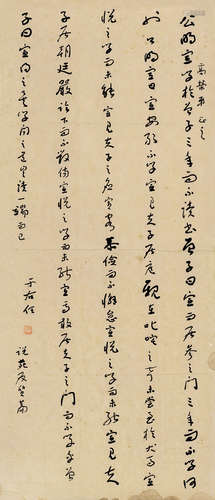 正之
公明宣學於曾子三年而不讀書曾子曰宣而居參之門三年而不學何
也公明宣曰宣安敢不學宣見夫子居庭親在叱咤之聲未嘗至於犬馬宣
悅之學而未能宣見夫子之應賓客恭儉而不懈怠宣悅之學而未能宣見夫
子居朝廷嚴臨下而不毀傷宣悅之學而未能宣安敢居夫子之門而不學乎曾
子曰宣 之 學 之 讀一端而已
于右任
說苑反質篇